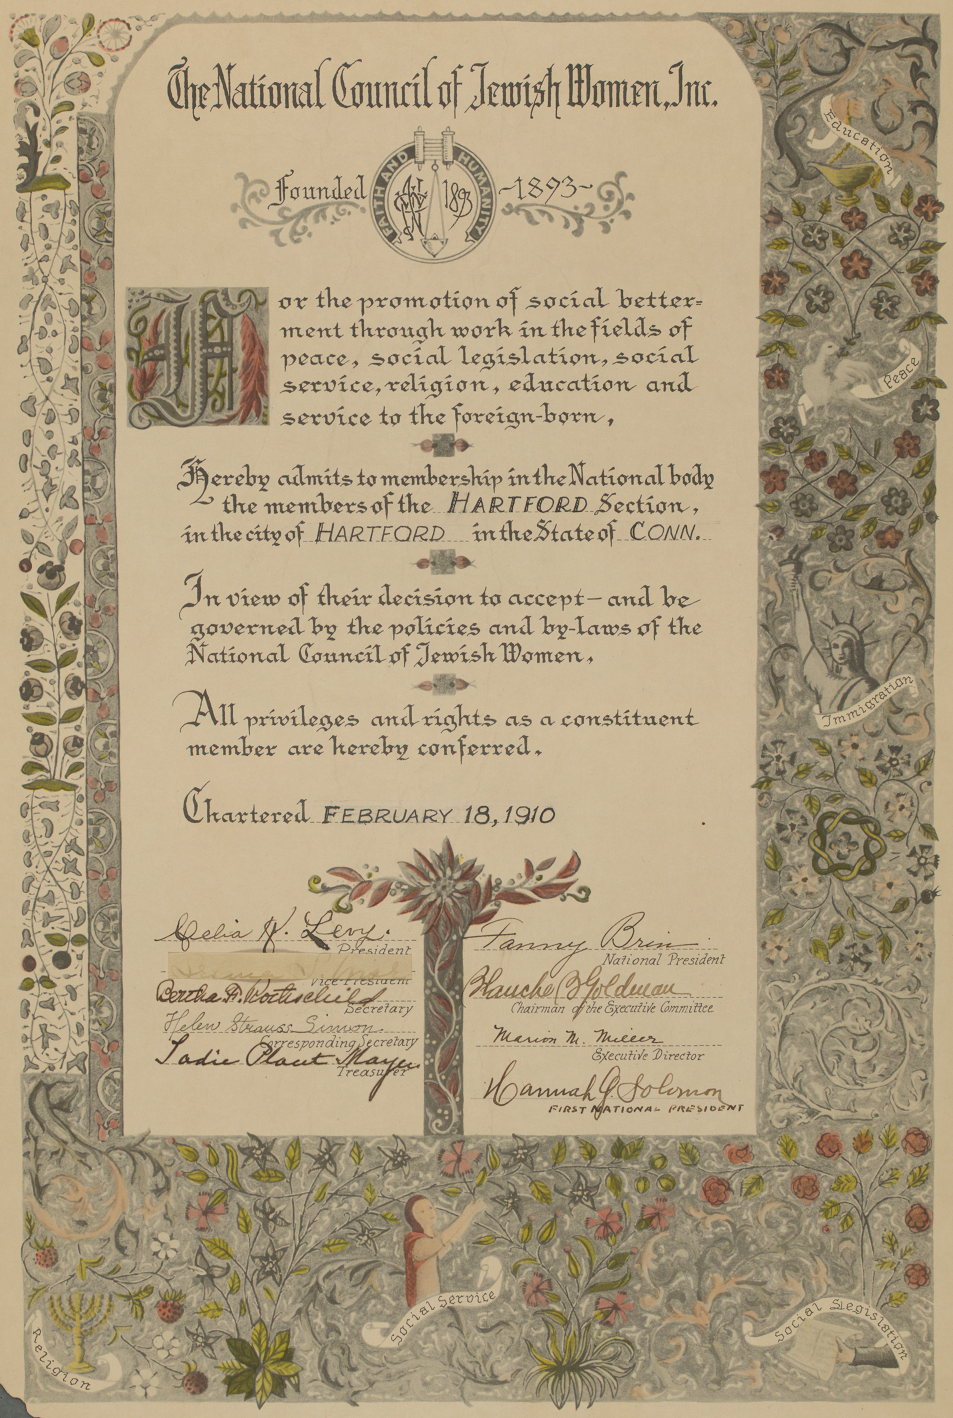 The National Council of Jewish Women, Inc.
Founded
FAITH AND HUMANITY
1893
~1893~
For the promotion of social better=
ment through work in the fields of
peace, social legislation, social
service, religion, education and
service to the foreign-born,
Hereby admits to membership in the National body
the members of the HARTFORD Section,
in the city of HARTFORD in the State of CONN.
In view of their decision to accept – and be
governed by the policies and by-laws of the
National Council of Jewish Women.
All privileges and rights as a constituent
member are hereby conferred.
Chartered FEBRUARY 18, 1910
Celia K. Levy.
President
Vice President
Bertha D. Rothschild
Secretary
Helen Strauss Simon.
Corresponding Secretary
Sadie Plaut Mayer
Treasurer
Fanny Brin
National President
Blanche B Goldman
Chairman of the Executive Committee
Marion M. Miller
Executive Director
Hannah G. Solomon
FIRST NATIONAL PRESIDENT
Education
Peace
Immigration
Religion
Social Service
Social Legislation